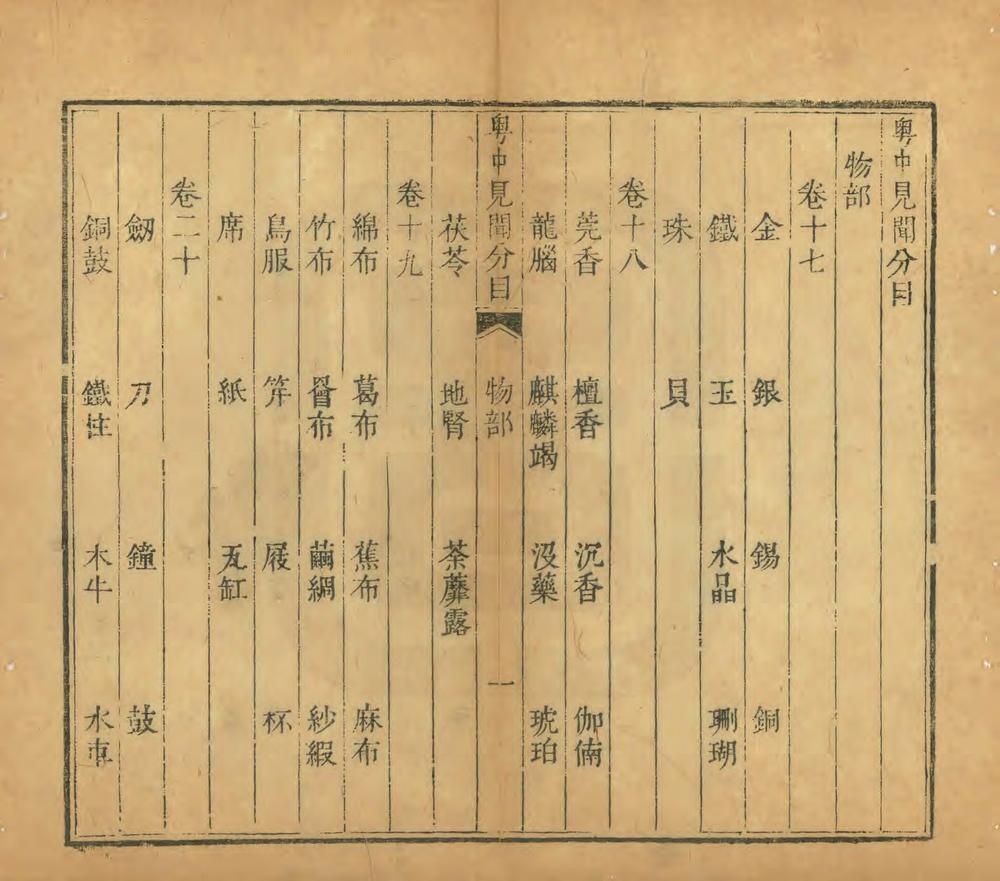 粵中見聞分目
物部
卷十七
金 銀 錫 銅
鐵 玉 水晶 珊瑚
珠 貝
卷十八
莞香 檀香 沉香 伽㑲
龍腦 麒麟竭 沒藥 琥珀
粵中見聞分目 物部 一
茯苓 地腎 荼蘼露
卷十九
綿布 葛布 蕉布 麻布
竹布 罾布 繭綢 紗緞
鳥服 笄 屐 杯
席 紙 瓦缸
卷二十
劒 刀 鐘 鼓
銅鼓 鐵柱 木牛 水車